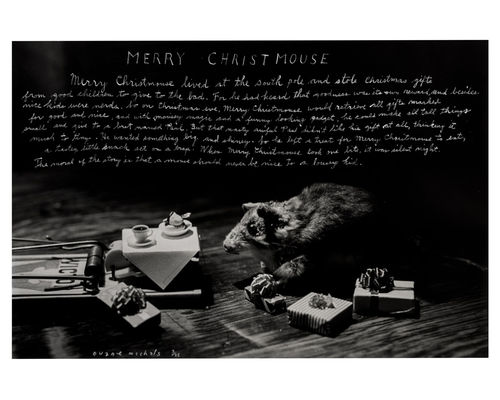 MERRY CHRISTMOUSE
Merry Christmouse lived at the south pole and stole Christmas gifts
from good children to give to the bad. For he had heard that goodness was its own reward, and besides
nice kids were nerds. So on Christmas eve, Merry Christmouse would retrieve all gifts marked
for good and nice, and with mousey magic and a funny looking gadget, he could make all tall things
small and give to a brat named Rick. But that nasty didn't like his gift at all, thinking it
much to tiny. He wanted something big and shiney. So he left a treat for Merry Christmouse to eat,
a tasty little snack set on a trap. When Merry Christmouse took one bite, it was silent night.
The moral of the story is that a mouse should never be nice to a lousy kid.
duane michals